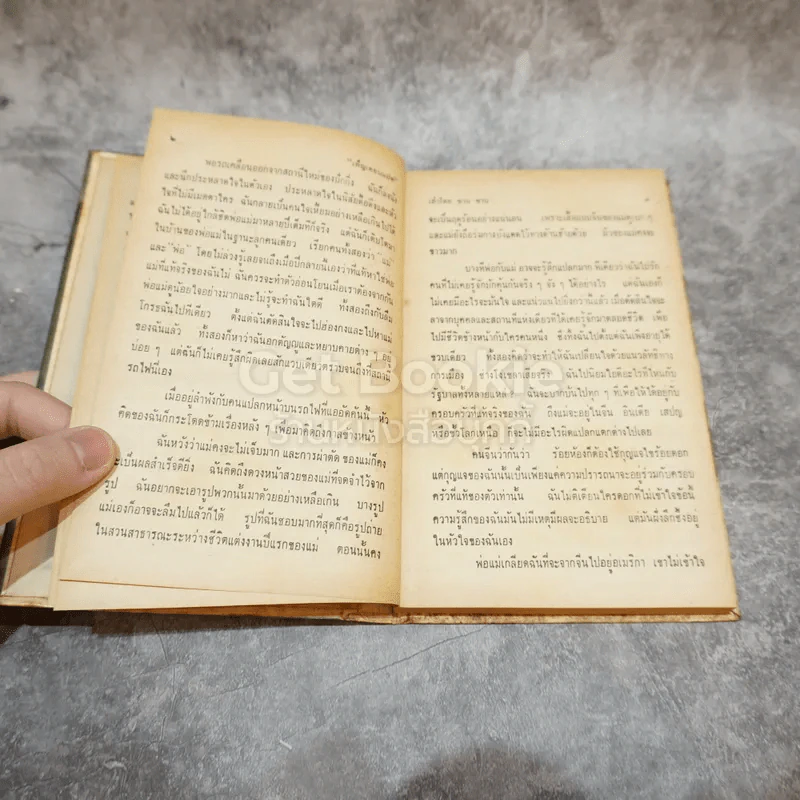 ๒
พอรถเคลื่อนออกจากสถานีใหม่ของปักกิ่ง
และนึกประหลาดใจในตัวเอง ประหลาดใจในนิสัยดื้อดึงและหัว
ใจที่ไม่มีเมตตาใคร ฉันกลายเป็นคนใจเหี้ยมอย่างเหลือเกินไปได้
ฉันไม่ได้อยู่ใกล้ชิดพ่อแม่มาหลายปีเต็มทีก็จริง แต่ฉันก็เติบโตมา
ในบ้านของพ่อแม่ในฐานะลูกคนเดียว เรียกคนทั้งสองว่า "แม่"
และ "พ่อ" โดยไม่ล่วงรู้เลยจนถึงเมื่อปีกลายนี้เองว่าที่แท้หาใช่พ่อ
แม่ที่แท้จริงของฉันไม่ ฉันควรจะทำตัวอ่อนโยนเมื่อเราต้องจากกัน
พ่อแม่ดูน้อยใจอย่างมากและไม่รู้จะทำฉันใดดี ทั้งสองถึงกับลืม
โกรธฉันไปทีเดียว ตั้งแต่ฉันตัดสินใจจะไปฮ่องกงและไปหาแม่
ของฉันแล้ว ทั้งสองก็หาว่าฉันอกตัญญูและหยาบคายต่าง ๆ อยู่
บ่อย ๆ แต่ฉันก็ไม่เคยรู้สึกผิดเลยสักแวบเดียวตราบจนถึงที่สถานี
รถไฟนี่เอง
เมื่ออยู่ลำพังกับคนแปลกหน้าบนรถไฟที่แออัดคันนี้ หัว
คิดของฉันก็กระโดดข้ามเรื่องหลัง ๆ เพื่อมาคิดถึงกาลข้างหน้า
ฉันหวังว่าแม่คงจะไม่เจ็บมาก และการผ่าตัด ของแม่ก็คง
จะเป็นผลสำเร็จดียิ่ง ฉันคิดถึงดวงหน้าสวยของแม่ที่จดจำไว้จาก
รูป ฉันอยากจะเอารูปพวกนั้นมาด้วยอย่างเหลือเกิน บางรูป
แม่เองก็อาจจะลืมไปแล้วก็ได้ รูปที่ฉันชอบมากที่สุดก็คือรูปถ่าย
ในสวนสาธารณะระหว่างชีวิตแต่งงานปีแรกของแม่ ตอนนั้นคง
จะเป็นฤดูร้อนอย่างแน่นอน
ขาวมาก
บางทีพ่อกับแม่ อาจจะรู้สึกแปลกมาก ทีเดียวว่าฉันไปรัก
คนที่ไม่เคยรู้จักมักคุ้นกันจริง ๆ จัง ๆ ได้อย่างไร แต่ฉันเองก็
ไม่เคยมีอะไรจะมั่นใจ และแน่วแน่ไปยิ่งกว่านี้แล้ว เมื่อตัดสินใจละ
ลาจากบุคคลและสถานที่แห่งเดียวที่ได้เคยรู้จักมาตลอดชีวิต เพื่อ
ไปมีชีวิตข้างหน้ากับใครคนหนึ่ง ซึ่งทิ้งฉันไปตั้งแต่ฉันเพิ่งอายุได้
ขวบเดียว ทั้งสองคิดว่าจะทำให้ฉันเปลี่ยนใจด้วยแนวลัทธิทาง
การเมือง ช่างโง่เขลาเสียจริง ฉันไปนิยมใยดีอะไรที่ไหนกับ
รัฐบาลทั้งหลายแหล่ ฉันจะบากบั่นไปทุก ๆ ที่เพื่อให้ได้อยู่กับ
ครอบครัวที่แท้จริงของฉัน ถึงแม่จะอยู่ในจีน อินเดีย สเปญ
หรือขั้วโลกเหนือ ก็จะไม่มีอะไรผิดแปลกแตกต่างไปเลย
คนจีนว่ากันว่า ร้อยห้องก็ต้องใช้กุญแจไขร้อยดอก
แต่กุญแจของฉันนั้นเป็นเพียงแค่ความปรารถนาจะอยู่ร่วมกับครอบ
ครัวที่แท้ของตัวเท่านั้น ฉันไม่ติเตียนใครดอกที่ไม่เข้าใจข้อนี้
ความรู้สึกของฉันมันไม่มีเหตุมีผลจะอธิบาย แต่มันฝังลึกซึ้งอยู่
ในหัวใจของฉันเอง
พ่อแม่เกลียดฉันที่จะจากจีนไปอยู่อเมริกา เขาไม่เข้าใจ
Get Bookie